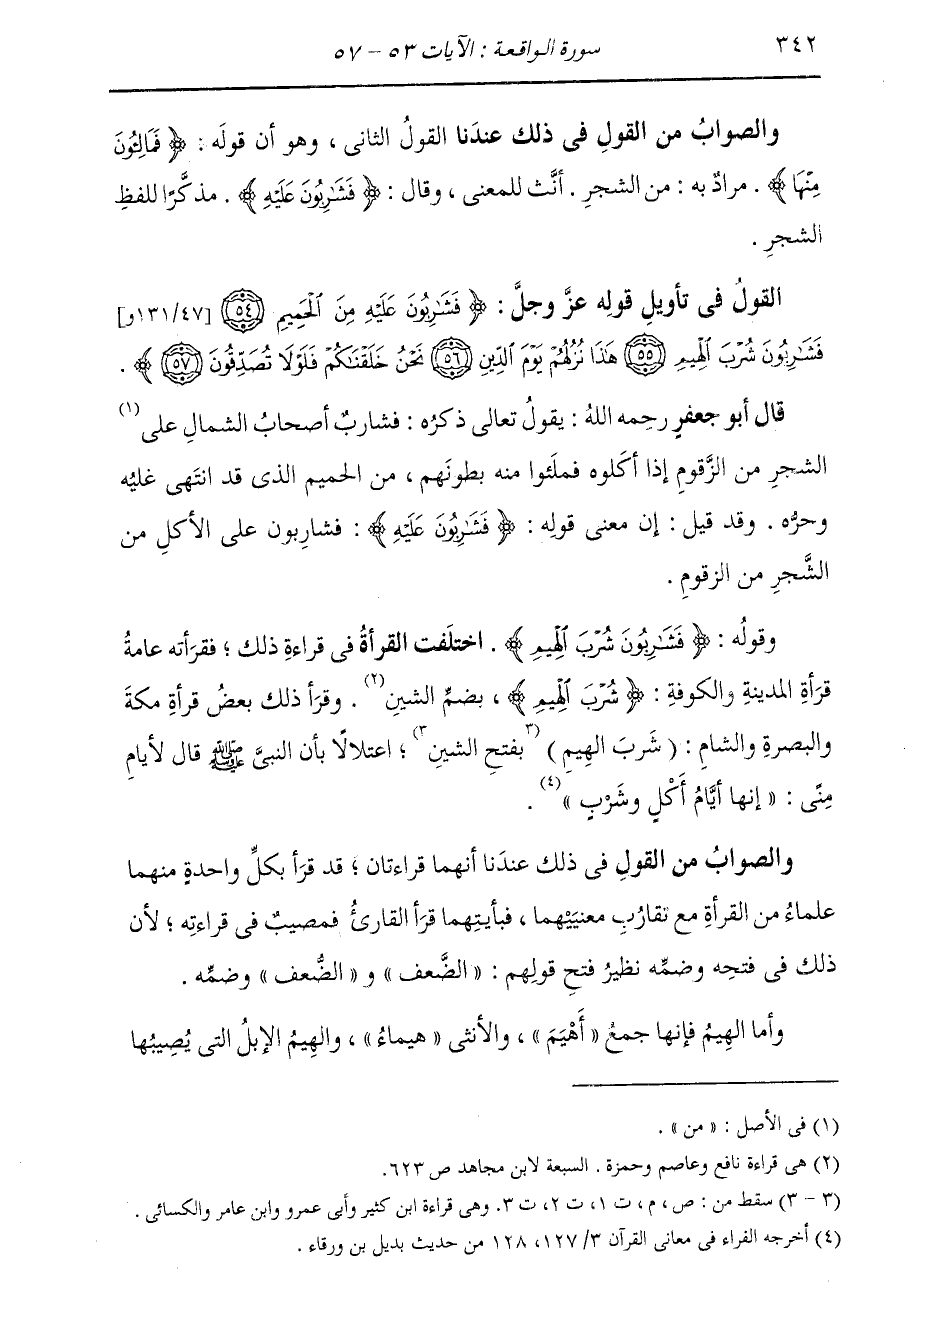 ٣٤٢
سورة الواقعة : الآيات ٥٣ – ٥٧
والصوابُ من القولِ فى ذلك عندَنا القولُ الثانى ، وهو أن قولَه : ﴿ فَمَالِـُٔونَ
مِنْهَا ﴾ . مرادٌ به : من الشجرِ . أنَّث للمعنى ، وقال : ﴿ فَشَٰرِبُونَ عَلَيْهِ ﴾ . مذكَّرًا للفظِ
الشجرِ .
القولُ فى تأويلِ قولِه عزَّ وجلَّ : ﴿ فَشَٰرِبُونَ عَلَيْهِ مِنَ ٱلْحَمِيمِ ٥٤ [١٣١/٤٧و]
فَشَٰرِبُونَ شُرْبَ ٱلْهِيمِ ٥٥ هَٰذَا نُزُلُهُمْ يَوْمَ ٱلدِّينِ ٥٦ نَحْنُ خَلَقْنَٰكُمْ فَلَوْلَا تُصَدِّقُونَ ٥٧ ﴾ .
قال أبو جعفرٍ رحِمه اللهُ : يقولُ تعالى ذكرُه : فشاربٌ أصحابُ الشمالِ على (١)
الشجرِ من الزَّقومِ إذا أكَلوه فملَئوا منه بطونَهم ، من الحميمِ الذى قد انتَهى غليُه
وحرُّه . وقد قيل : إن معنى قولِه : ﴿ فَشَٰرِبُونَ عَلَيْهِ ﴾ : فشارِبون على الأكلِ من
الشَّجرِ من الزقومِ .
وقولُه : ﴿ فَشَٰرِبُونَ شُرْبَ ٱلْهِيمِ ﴾ . اختلَفت القرأةُ فى قراءةِ ذلك ؛ فقرَأته عامةُ
قرَأةِ المدينةِ والكوفةِ : ﴿ شُرْبَ ٱلْهِيمِ ﴾ ، بضمِّ الشينِ (٢) . وقرَأ ذلك بعضُ قرأةِ مكةَ
والبصرةِ والشامِ : ( شَربَ الهِيمِ ) (٣ بفتحِ الشينِ ٣) ؛ اعتلالًا بأن النبىَّ ﷺ قال لأيامِ
مِنًى : « إنها أيَّامُ أَكْلٍ وشَرْبٍ » (٤) .
والصوابُ من القولِ فى ذلك عندَنا أنهما قراءتان ؛ قد قرَأ بكلِّ واحدةٍ منهما
علماءُ من القرأةِ مع تقارُبِ معنيَيْهما ، فبأيتِهما قرَأ القارئُ فمصيبٌ فى قراءتِه ؛ لأن
ذلك فى فتحِه وضمِّه نظيرُ فتحِ قولِهم : « الضَّعف » و « الضُّعف » وضمِّه .
وأما الهِيمُ فإنها جمعُ « أَهْيَمَ » ، والأنثى « هيماءُ » ، والهِيمُ الإبلُ التى يُصِيبُها
(١) فى الأصل : « من » .
(٢) هى قراءة نافع وعاصم وحمزة . السبعة لابن مجاهد ص ٦٢٣.
(٣ – ٣) سقط من : ص ، م ، ت ١، ت ٢، ت ٣. وهى قراءة ابن كثير وأبى عمرو وابن عامر والكسائى .
(٤) أخرجه الفراء فى معانى القرآن ٣/ ١٢٧، ١٢٨ من حديث بديل بن ورقاء .